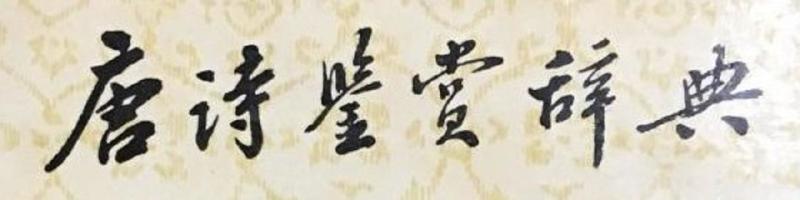 唐诗鉴赏辞典